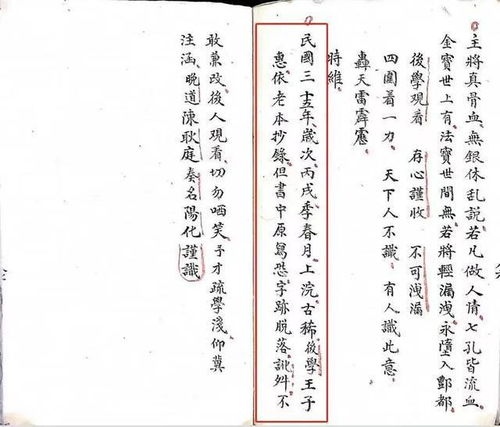 主將真骨血無銀休乱説若凡做人情七孔皆流血
金寶世上有法寶世間無若將輕漏洩永墮入酆都
後學观看 存心謹收 不可洩漏
四圍着一力 天下人不識 有人識此意
轟天雷霹靂
時維
民國三十五年歲次丙戌季春月上浣古稀後學王子
惠依老本抄錄但書中原寫恐字跡脫落訛舛不
敢兼改後人观看切勿哂笑予才疏學淺仰冀
汪涵晚道陳耿庭奏名陽化謹識